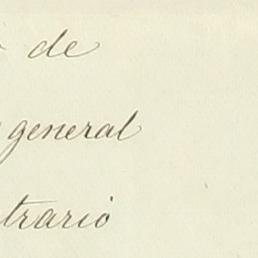 de
general
trario